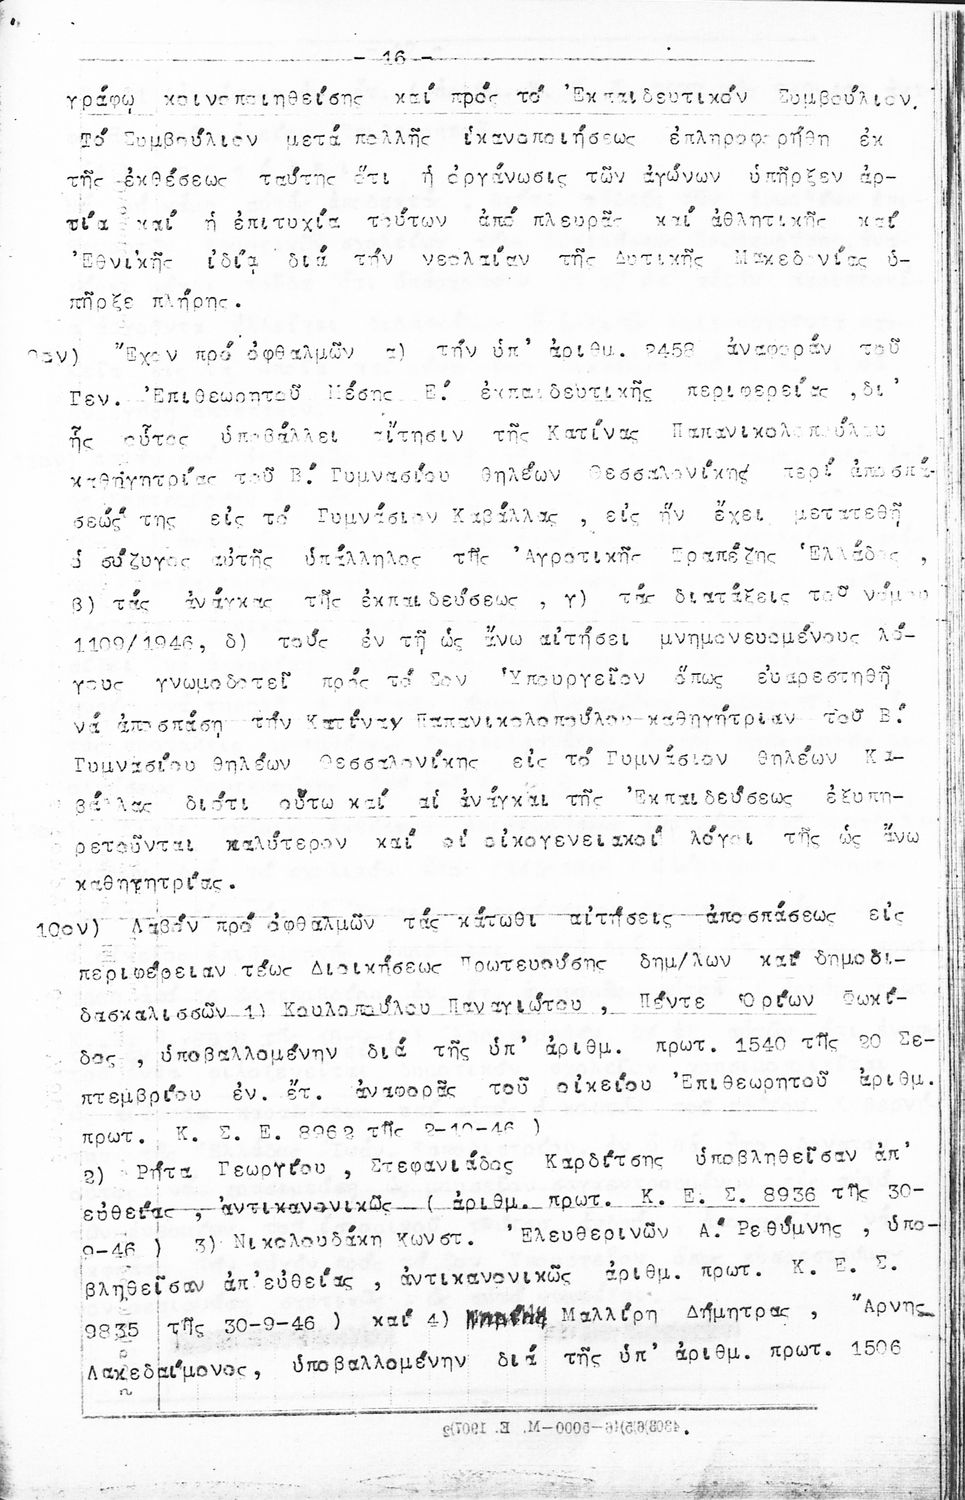 - 16 -
γράφῳ κοινοποιηθείσης καί πρός τό Ἐκπαιδευτικόν Συμβούλιον.
Τό Συμβούλιον μετά πολλῆς ἱκανοποιήσεως ἐπληροφορήθη ἐκ
τῆς ἐκθέσεως ταύτης ὅτι ἡ ὀργάνωσις τῶν ἀγώνων ὑπῆρξεν ἀρ-
τία καί ἡ ἐπιτυχία τούτων ἀπό πλευρᾶς καί ἀθλητικῆς καί
Ἐθνικῆς ἰδίᾳ διά τήν νεολαίαν τῆς Δυτικῆς Μακεδονίας ὑ-
πῆρξε πλήρης.
9ον) Ἔχον πρό ὀφθαλμῶν α) τήν ὑπ' ἀριθμ. 2458 ἀναφοράν τοῦ
Γεν. Ἐπιθεωρητοῦ Μέσης Ε΄ ἐκπαιδευτικῆς περιφερείας ,δι'
ἧς οὗτος ὑποβάλλει αἴτησιν τῆς Κατίνας Παπανικολοπούλου
καθηγητρίας τοῦ Β΄ Γυμνασίου θηλέων Θεσσαλονίκης περί ἀποσπά-
σεώς της εἰς τό Γυμνάσιον Καβάλλας , εἰς ἥν ἔχει μετατεθῆ
ὁ σύζυγος αὐτῆς ὑπάλληλος τῆς Ἀγροτικῆς Τραπέζης Ἑλλάδος ,
β) τάς ἀνάγκας τῆς ἐκπαιδεύσεως , γ) τάς διατάξεις τοῦ νόμου
1109/1946, δ) τούς ἐν τῇ ὡς ἄνω αἰτήσει μνημονευομένους λό-
γους γνωμοδοτεῖ πρός τό Σον Ὑπουργεῖον ὅπως εὐαρεστηθῆ
νά ἀποσπάσῃ τήν Κατίναν Παπανικολοπούλου καθηγήτριαν τοῦ Β΄
Γυμνασίου θηλέων Θεσσαλονίκης εἰς τό Γυμνάσιον θηλέων Κα-
βάλλας διότι οὕτω καί αἱ ἀνάγκαι τῆς Ἐκπαιδεύσεως ἐξυπη-
ρετοῦνται καλύτερον καί οἱ οἰκογενειακοί λόγοι τῆς ὡς ἄνω
καθηγητρίας.
10ον) Λαβόν πρό ὀφθαλμῶν τάς κάτωθι αἰτήσεις ἀποσπάσεως εἰς
περιφέρειαν τέως Διοικήσεως Πρωτευούσης δημ/λων καί δημοδι-
δασκαλισσῶν 1) Κουλοπούλου Παναγιώτου , Πέντε Ὁρίων Φωκί-
δος , ὑποβαλλομένην διά τῆς ὑπ' ἀριθμ. πρωτ. 1540 τῆς 20 Σε-
πτεμβρίου ἐν. ἔτ. ἀναφορᾶς τοῦ οἰκείου Ἐπιθεωρητοῦ ἀριθμ.
πρωτ. Κ. Σ. Ε. 8962 τῆς 2-10-46 )
2) Ρήτα Γεωργίου , Στεφανιάδος Καρδίτσης ὑποβληθεῖσαν ἀπ'
εὐθείας , ἀντικανονικῶς ( ἀριθμ. πρωτ. Κ. Ε. Σ. 8936 τῆς 30-
9-46 ) 3) Νικολουδάκη Κωνστ. Ἐλευθερινῶν Α΄ Ρεθύμνης , ὑπο-
βληθεῖσαν ἀπ'εὐθείας , ἀντικανονικῶς ἀριθμ. πρωτ. Κ. Ε. Σ.
9835 τῆς 30-9-46 ) καί 4) Μαλλίρη Δήμητρας , Ἄρνης
Λακεδαίμονος, ὑποβαλλομένην διά τῆς ὑπ' ἀριθμ. πρωτ. 1506